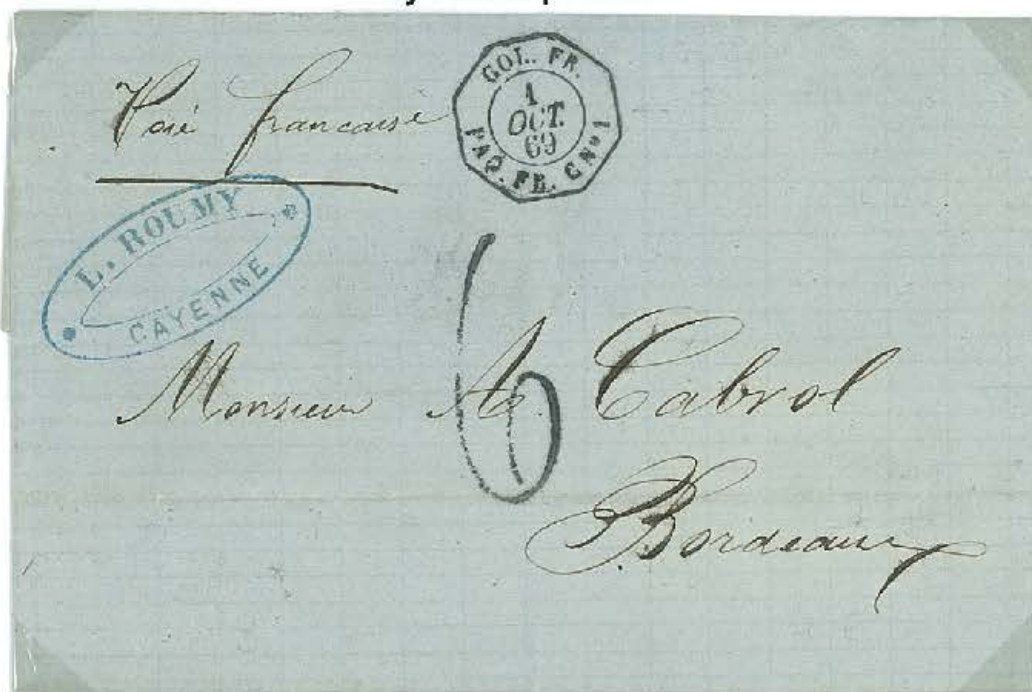 Voie francaise
COL. FR.
1
OCT.
69
PAQ. FR. C Nº 1
L. ROUMY
CAYENNE
6
Monsieur A. Cabrol
Bordeaux